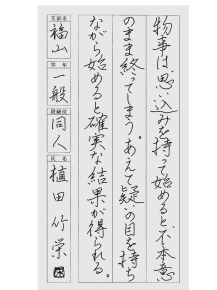 物事は思い込みを持って始めると不本意
のまま終ってしまう。あえて疑いの目を持ち
ながら始めると確実な結果が得られる。
支部名
福山
学年
一般
段級位
同人
氏名
植田竹栄